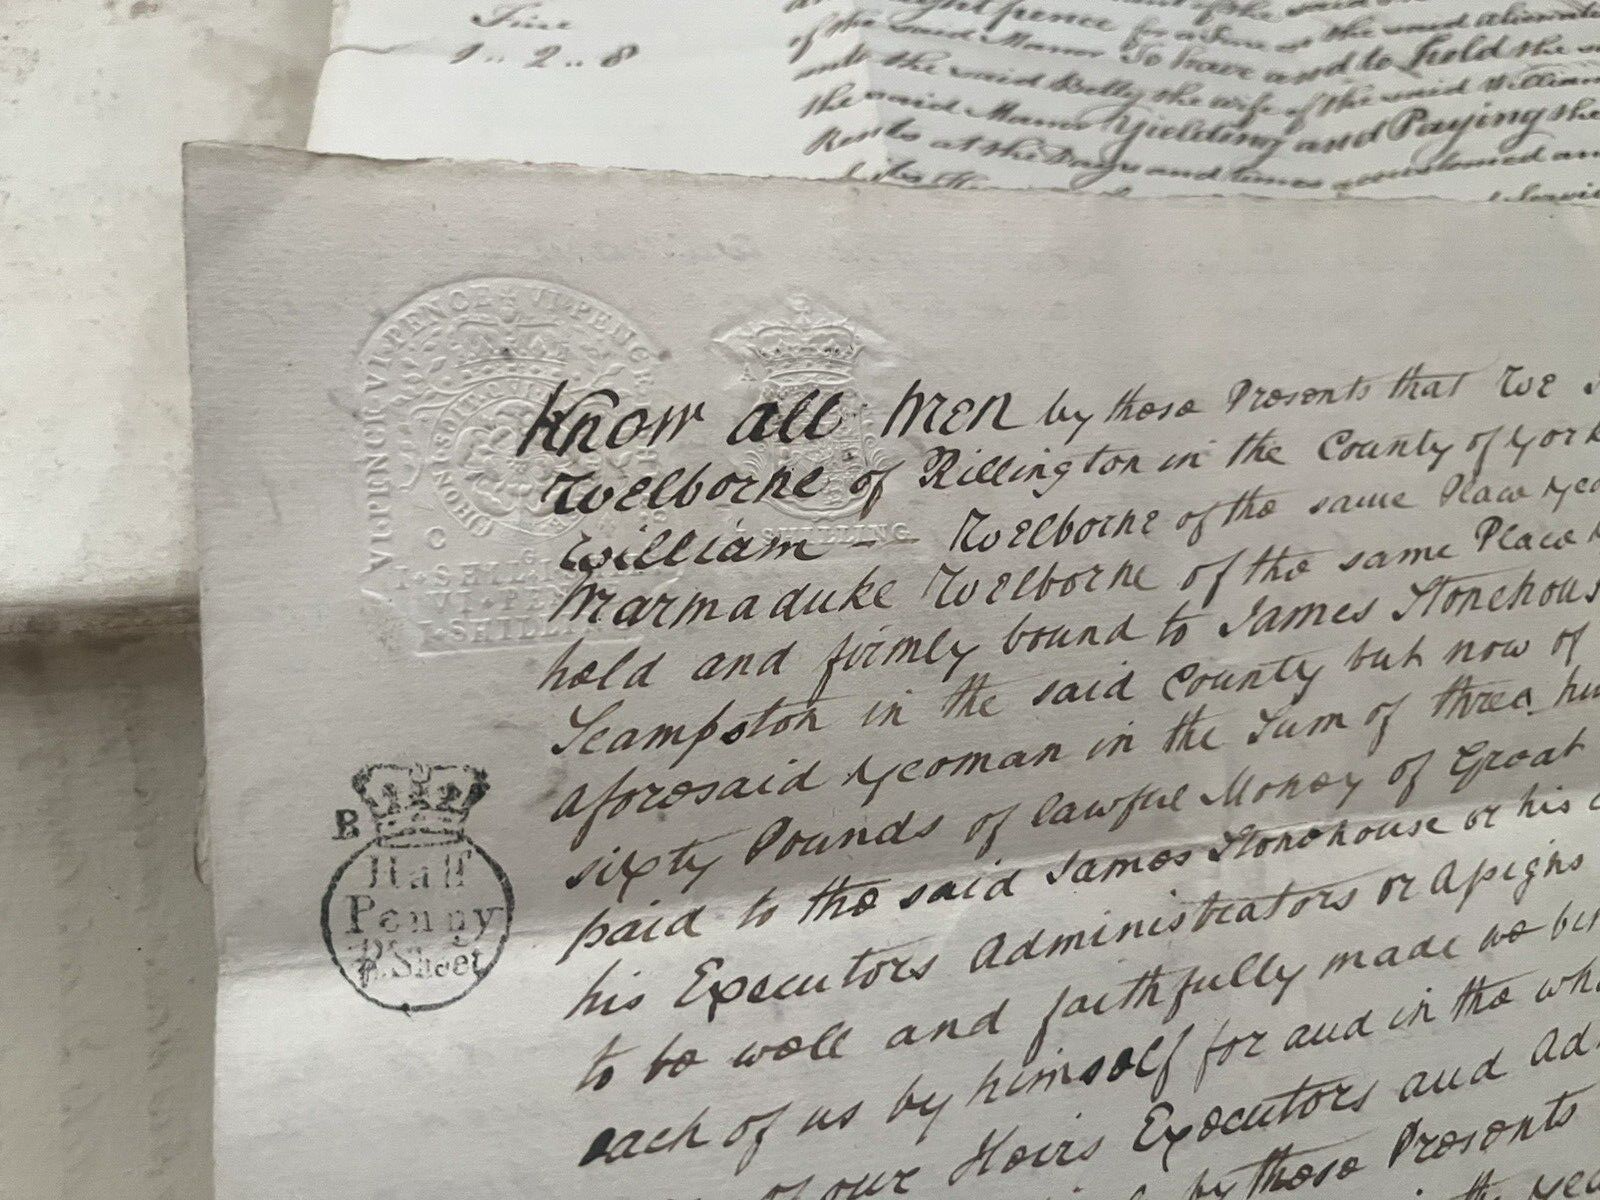 Fine
1 .. 2 .. 8
of the said Manor To have and to hold the
unto the said Betty the wife of the said William
the said Manor Yielding and Paying the
Rents at the Days and times accustomed and
VI·PENCE VI·PENCE VI·PENCE
HONI SOIT QUI
C G
1·SHILLING
VI·PENCE
1·SHILLING
A
SHILLING
Know all Men by these Presents that We
Welborne of Rillington in the County of York
William — Welborne of the same Place
Marmaduke Welborne of the same Place
held and firmly bound to James Stonehouse
Scampston in the said County but now of
aforesaid Yeoman in the Sum of three
sixty Pounds of lawful Money of Great
paid to the said James Stonehouse or his
his Executors Administrators or Assigns
to be well and faithfully made we
each of us by himself for and in the
of our Heirs Executors and
by these Presents
B
Half
Penny
Pr. Sheet